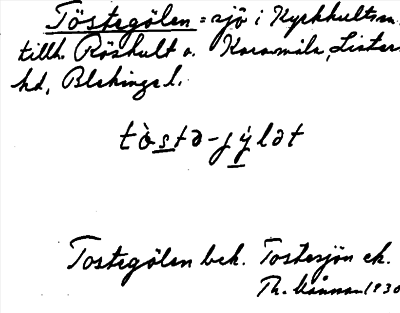 Töstegölen = sjö i Kyrkhults sn.
tillh. Röshult o. Karamåla, Listers
hd, Blekinge l.
tò̀stə-jy̗lət
Tostegölen bek. Tostesjön ek.
Th. 1930